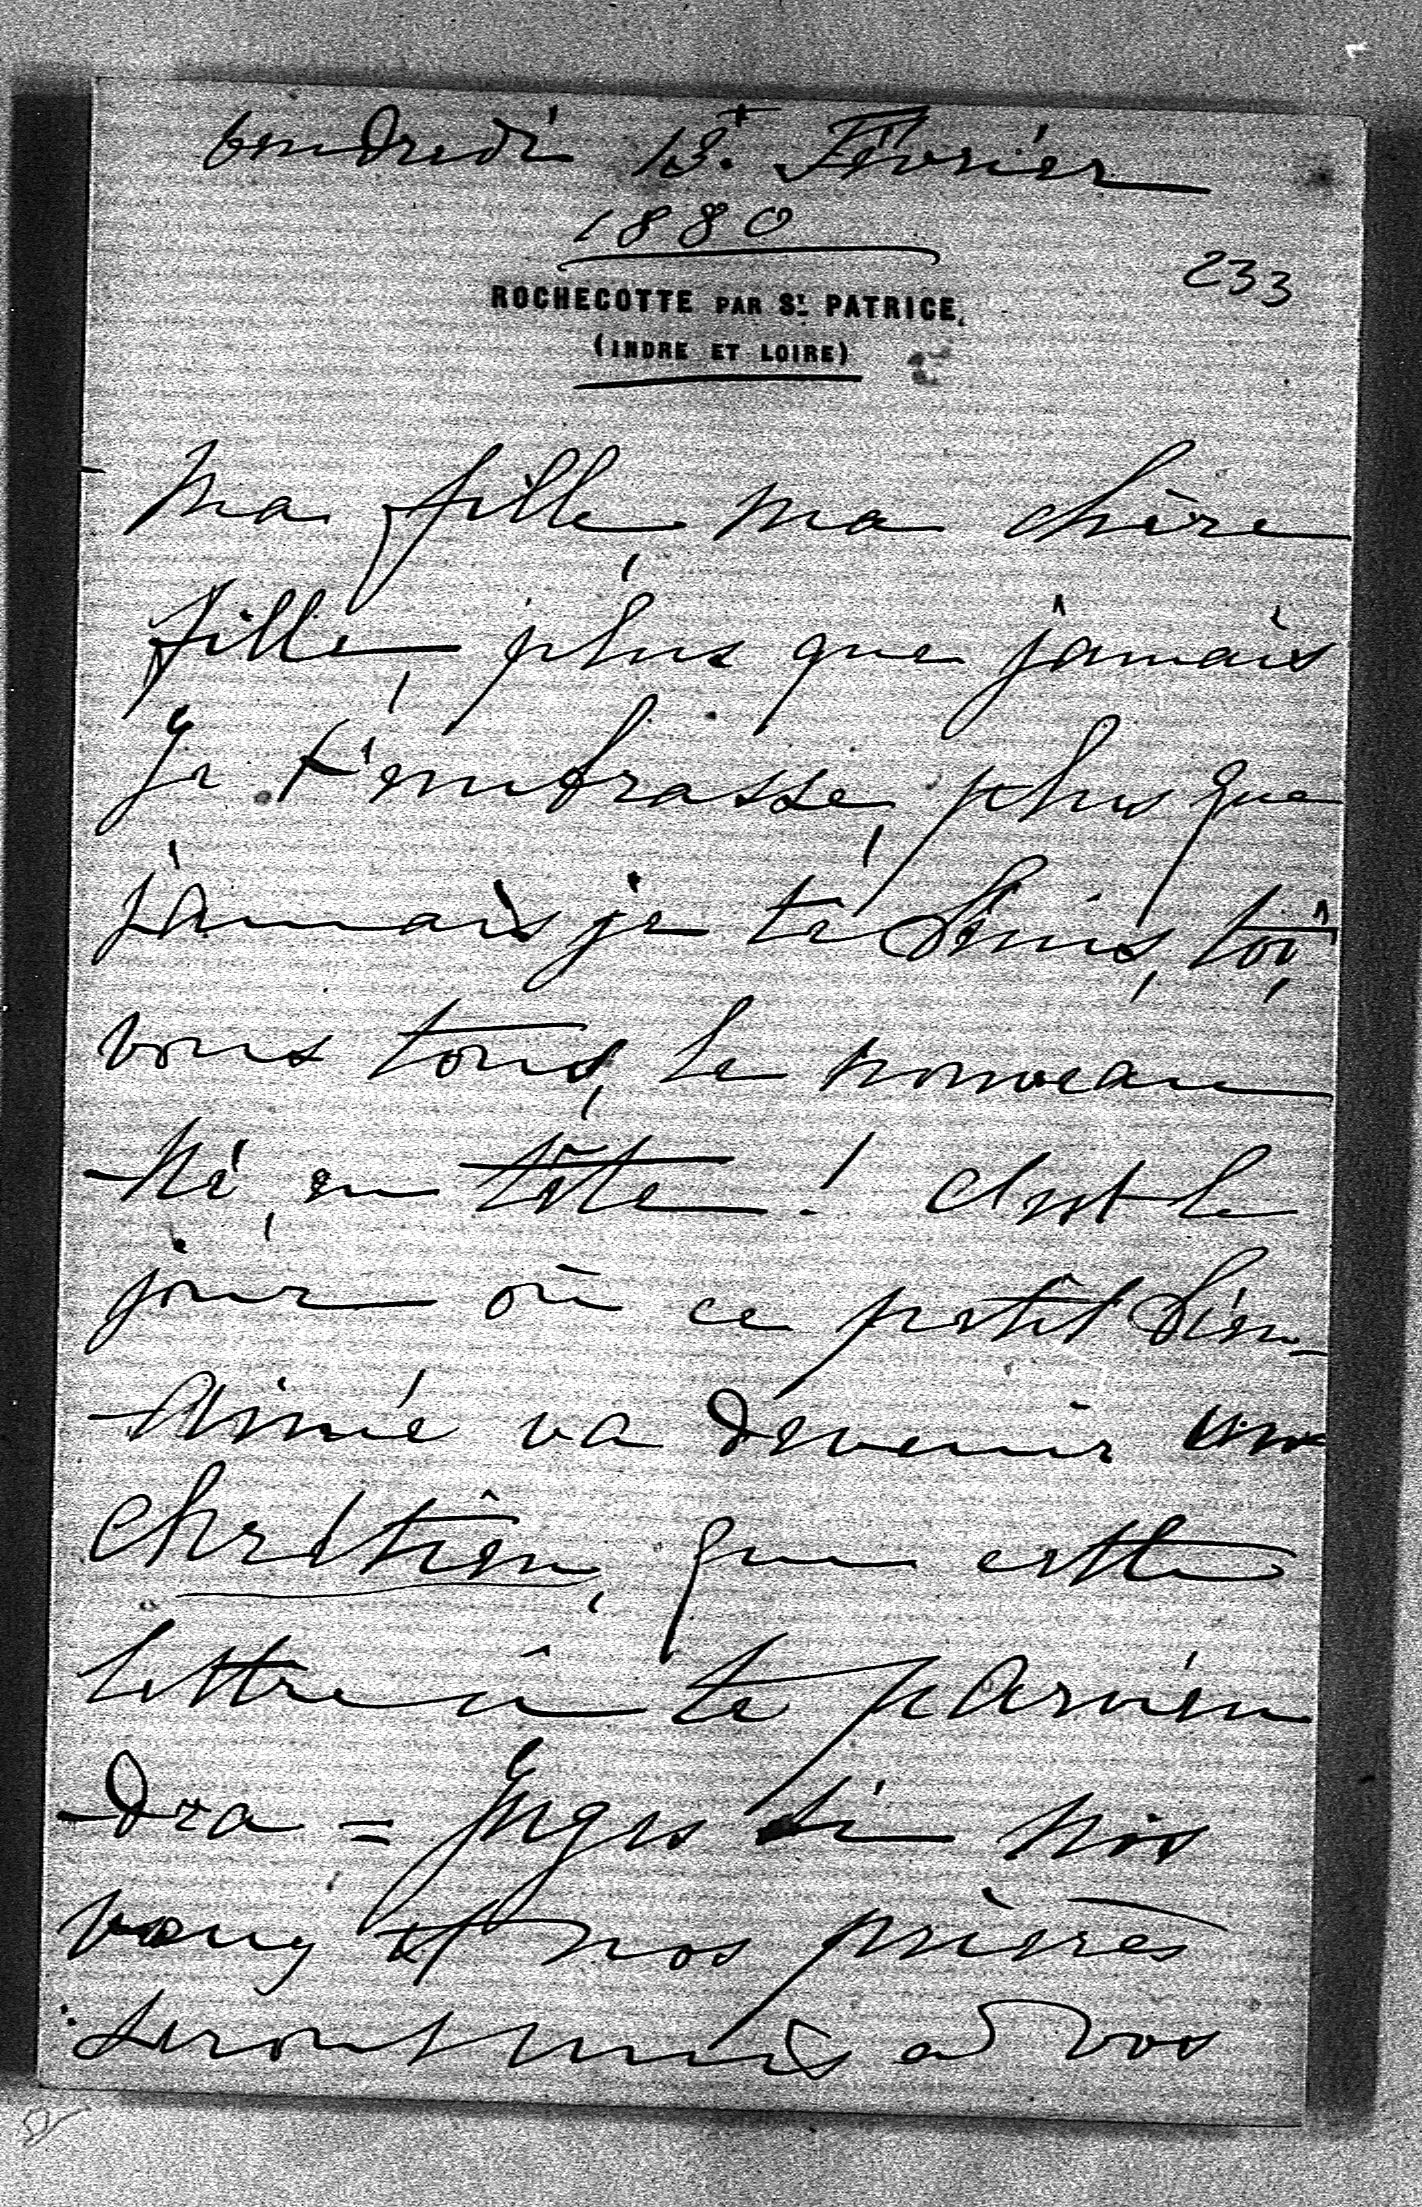 vendredi 13. Février
1880
233
ROCHECOTTE PAR St. PATRICE,
(INDRE ET LOIRE)
Ma fille, ma chère
fille, plus que jamais
Je t'embrasse, plus que
jamais je te bénis, toi,
vous tous, le nouveau
Né, en tête ! C'est le
jour où ce petit bien-
Aimé va devenir un
Chrétien, que cette
lettre ci te parvien
dra = Juges si nos
vœux et nos prières
seront unis à vos